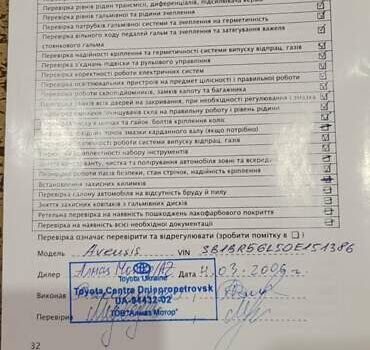 Перевірка рівнів рідин трансмісії, диференціалів, підсилювача керма
Перевірка рівнів гальмівної рідини та рідини зчеплення
Перевірка патрубків гальмівної системи та зчеплення на герметичність
Перевірка вільного ходу педалей гальм та зчеплення та затягування важеля
стоянкового гальма
Перевірка надійності кріплення та герметичності системи випуску відпрац. газів
Перевірка з'єднань підвіски та рульового управління
Перевірка коректності роботи електричних систем
Перевірка освітлювальних пристроїв на предмет цілісності і правильної роботи
Перевірка роботи склопідйомників, замків капоту та багажника
всіх дверей на закривання, при необхідності регулювання і змазка
очищувачів скла на правильну роботу і рівень рідини
гайок, болтів кріплення коліс
точок змазки карданного валу (якщо потрібно)
роботи системи випуску відпрац. газів
комплектності набору інструментів
чистка та полірування автомобіля зовні та всередині
роботи пасів безпеки, стан стрічок, надійність кріплення
Встановлення захисних килимків
Перевірка салону автомобіля на відсутність бруду й пилу
Зняття захисних ковпаків з гальмівних дисків
Ретельна перевірка на наявність пошкоджень лакофарбового покриття
Перевірка на наявність всієї необхідної документації
Перевірка означає перевірити та відрегулювати (зробити помітку в ☐)
Модель Avensis VIN SB1BR56L50E151386
Дилер Алмаз Мотор/AZ Дата 4.03.2006г.
Toyota Ukraine
Toyota Centre Dnipropetrovsk
Виконав
UA-94432-02
ТОВ "Алмаз Мотор"
Перевірив
32